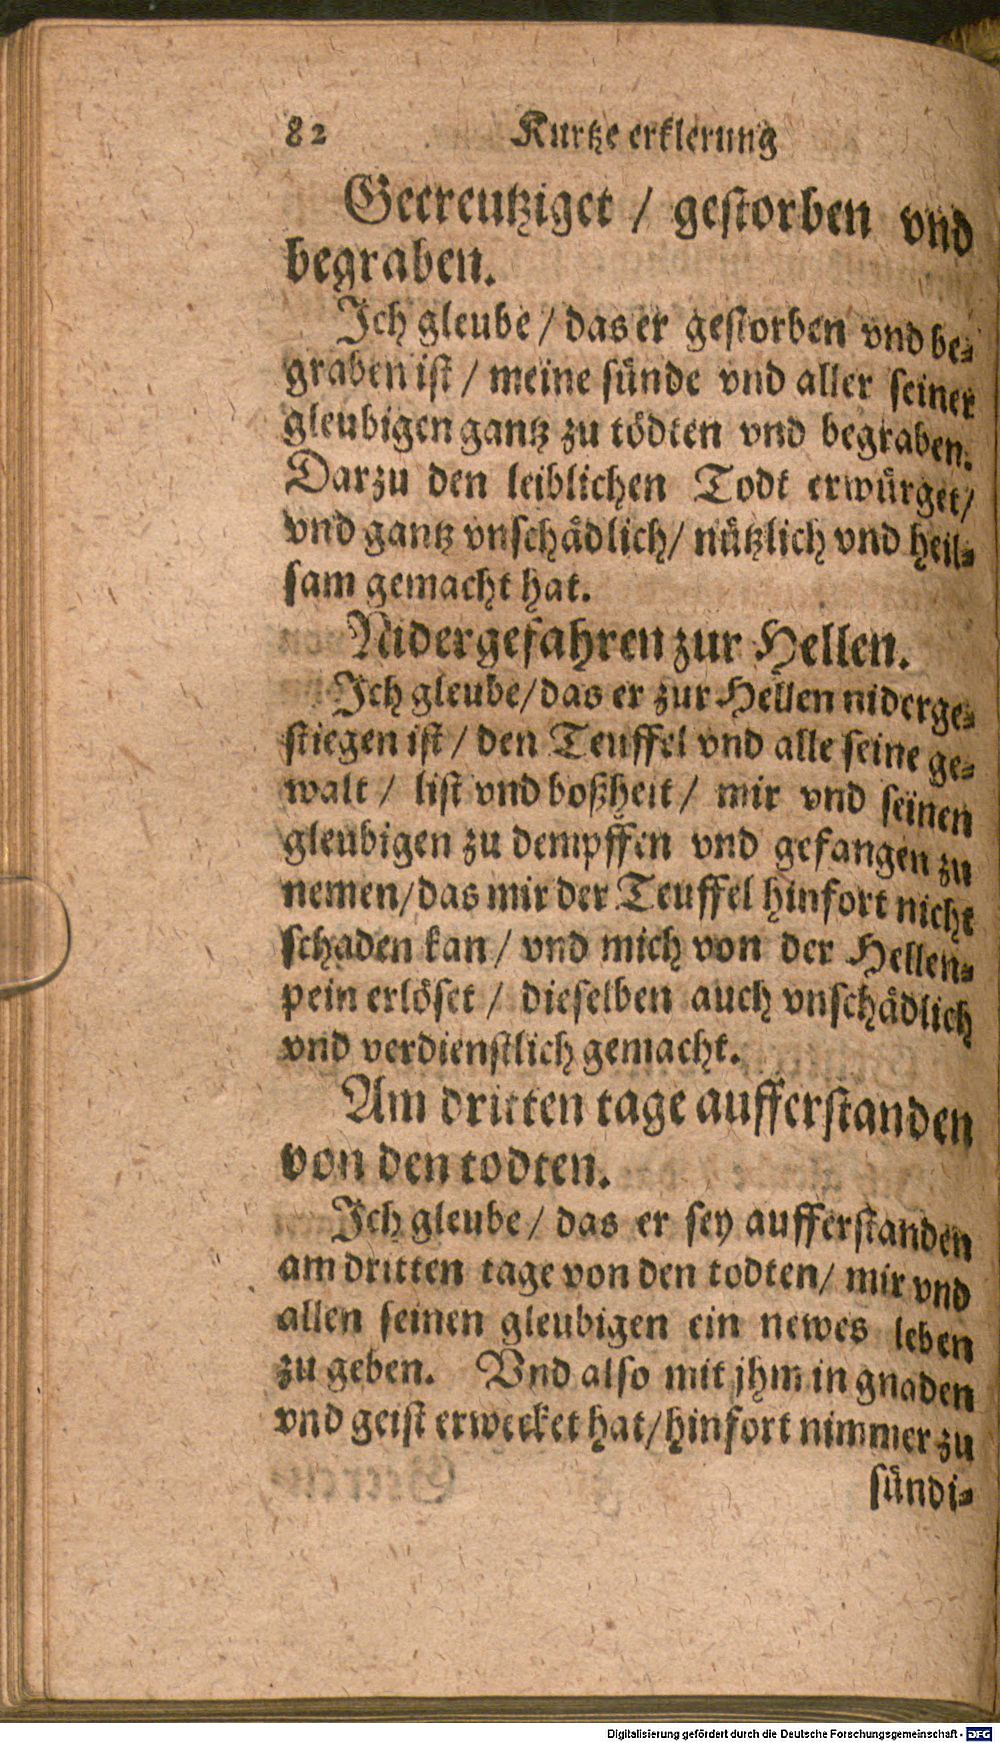 82 Kurtze erklerung
Gecreutziget / gestorben vnd
begraben.
Ich gleube / das er gestorben vnd be-
graben ist / meine sünde vnd aller seiner
gleubigen gantz zu tödten vnd begraben.
Darzu den leiblichen Todt erwürget/
vnd gantz vnschädlich/ nützlich vnd heil-
sam gemacht hat.
Nidergefahren zur Hellen.
Ich gleube/das er zur Hellen niderge-
stiegen ist / den Teuffel vnd alle seine ge-
walt / list vnd boßheit / mir vnd seinen
gleubigen zu dempffen vnd gefangen zu
nemen/das mir der Teuffel hinfort nicht
schaden kan / vnd mich von der Hellen-
pein erlöset / dieselben auch vnschädlich
vnd verdienstlich gemacht.
Am dritten tage aufferstanden
von den todten.
Ich gleube / das er sey aufferstanden
am dritten tage von den todten/ mir vnd
allen seinen gleubigen ein newes leben
zu geben. Vnd also mit jhm in gnaden
vnd geist erwecket hat/hinfort nimmer zu
sündi-
Digitalisierung gefördert durch die Deutsche Forschungsgemeinschaft - DFG